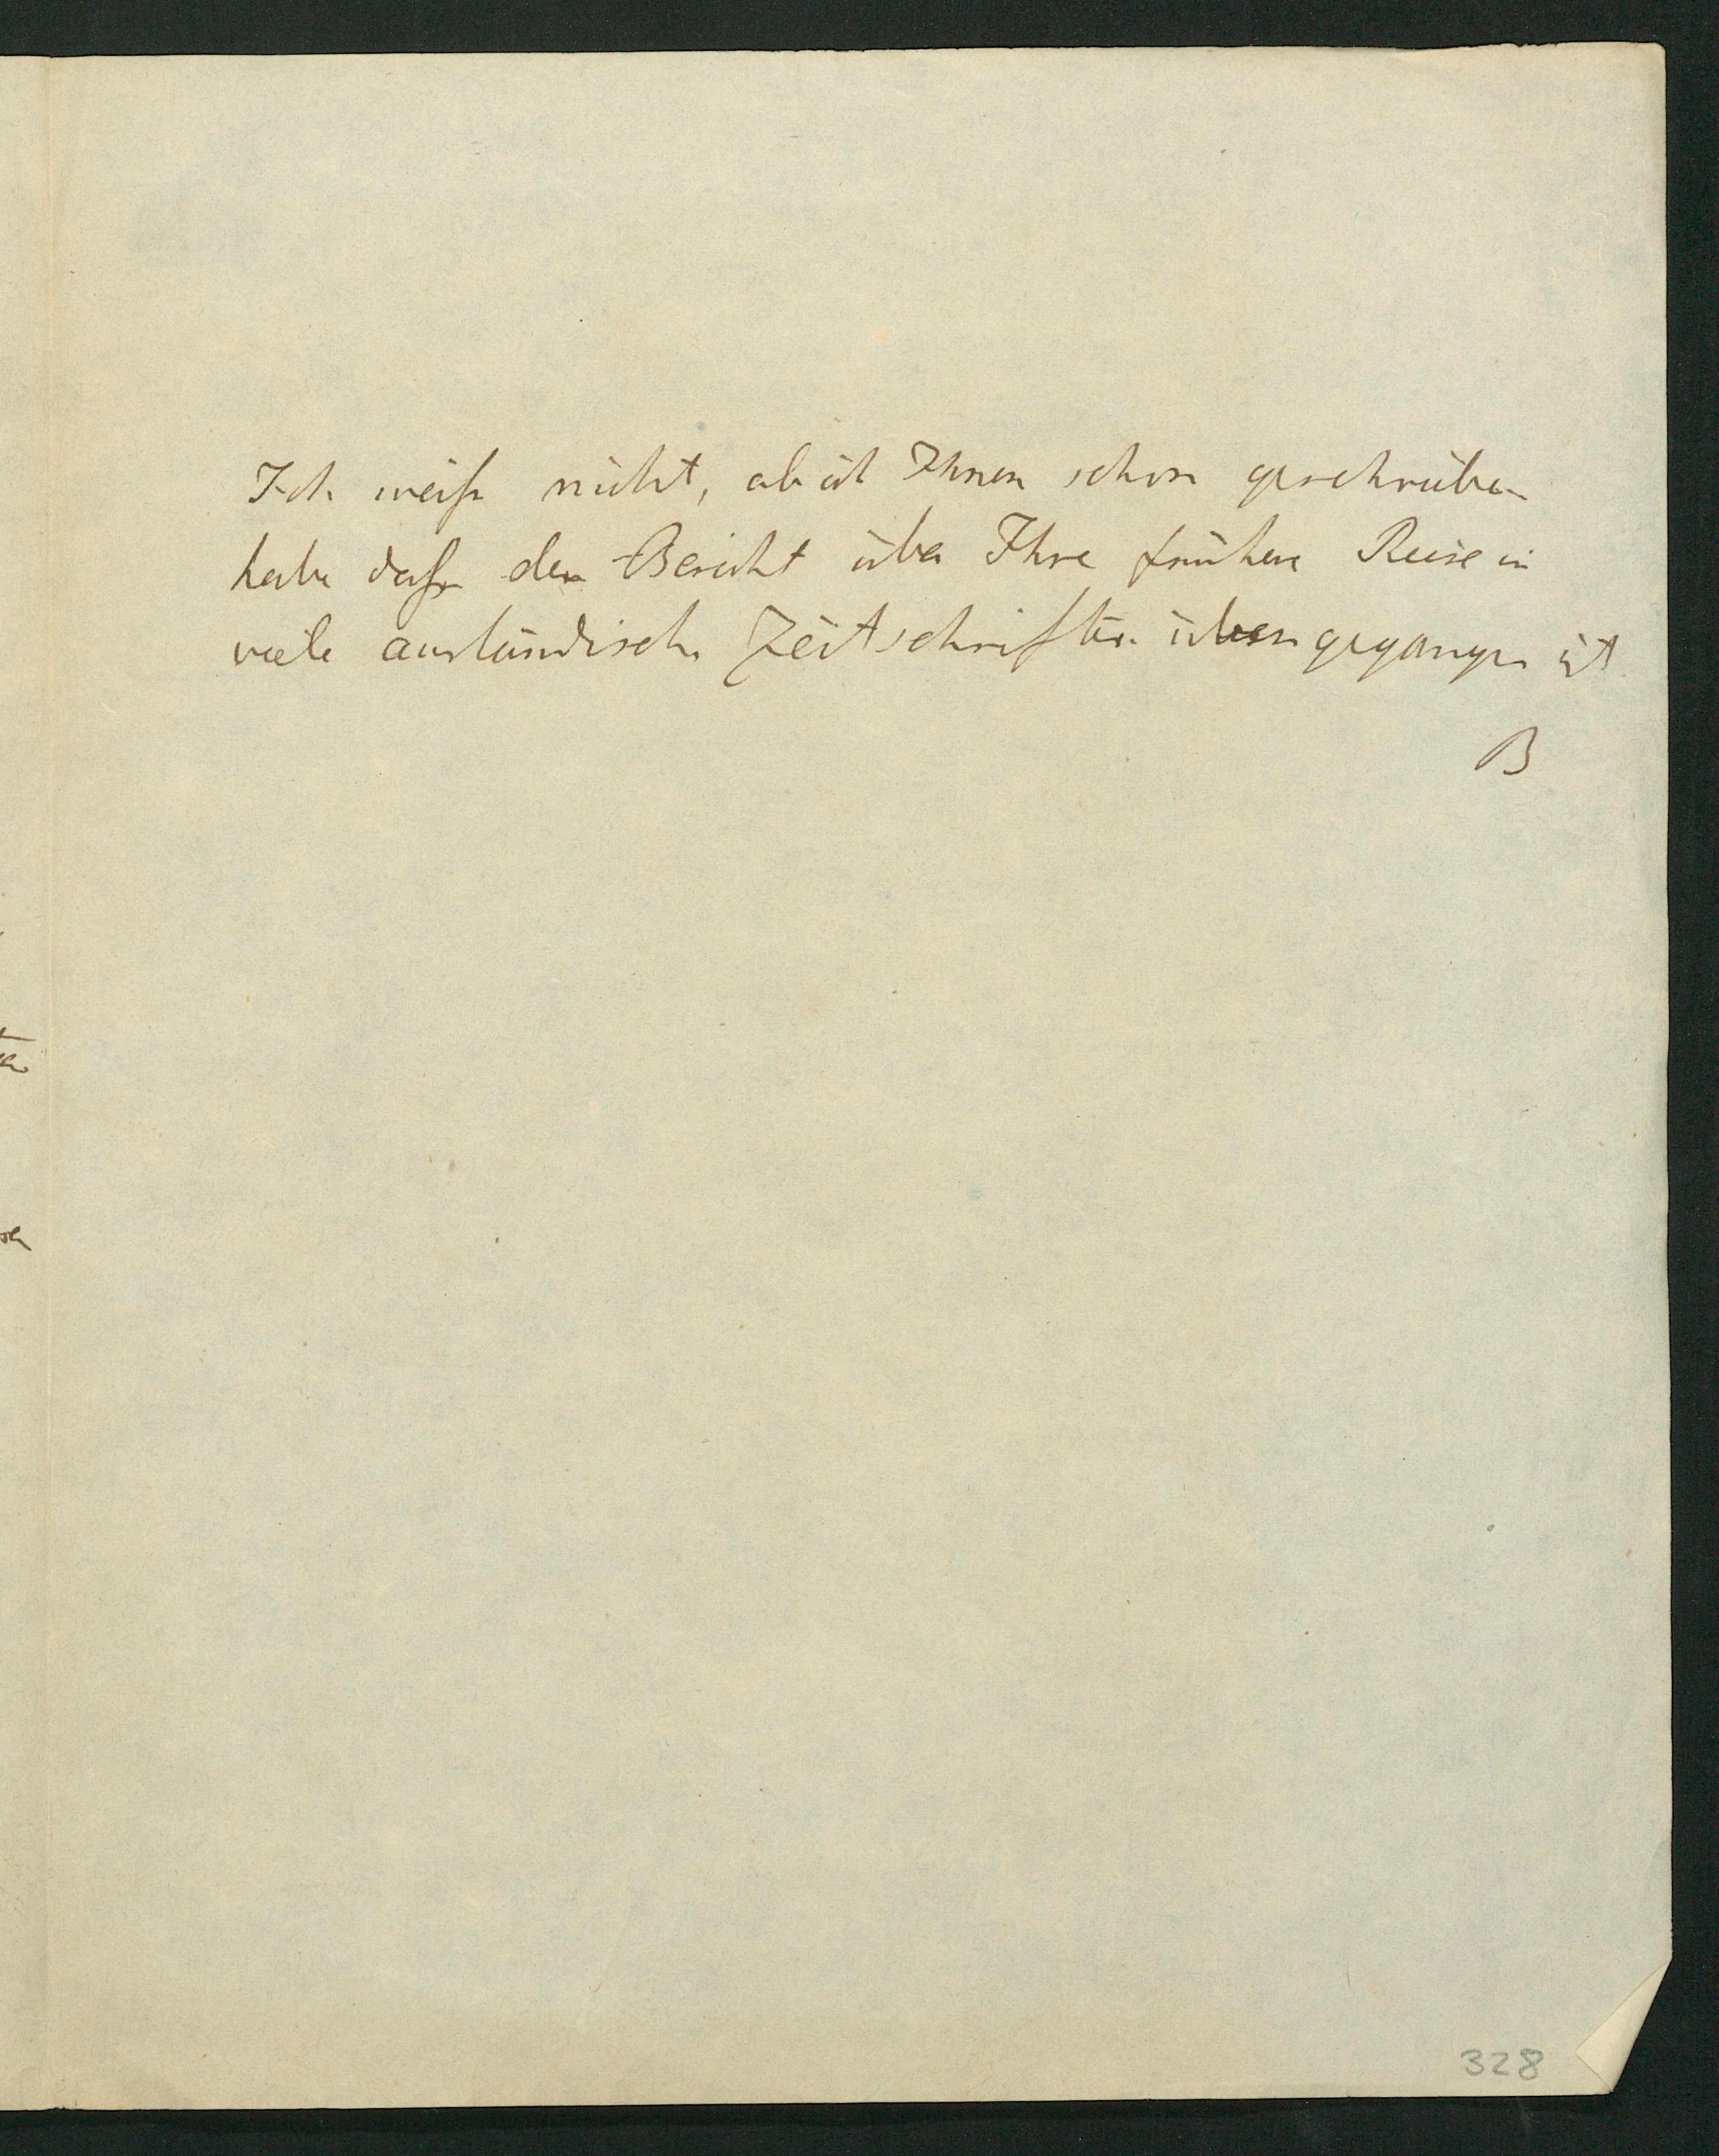 Ich weiß nicht, ob ich Ihnen schon geschrieben
habe daß der Bericht über Ihre frühere Reise in
viele ausländische Zeitschriften übergegangen ist.
B
328